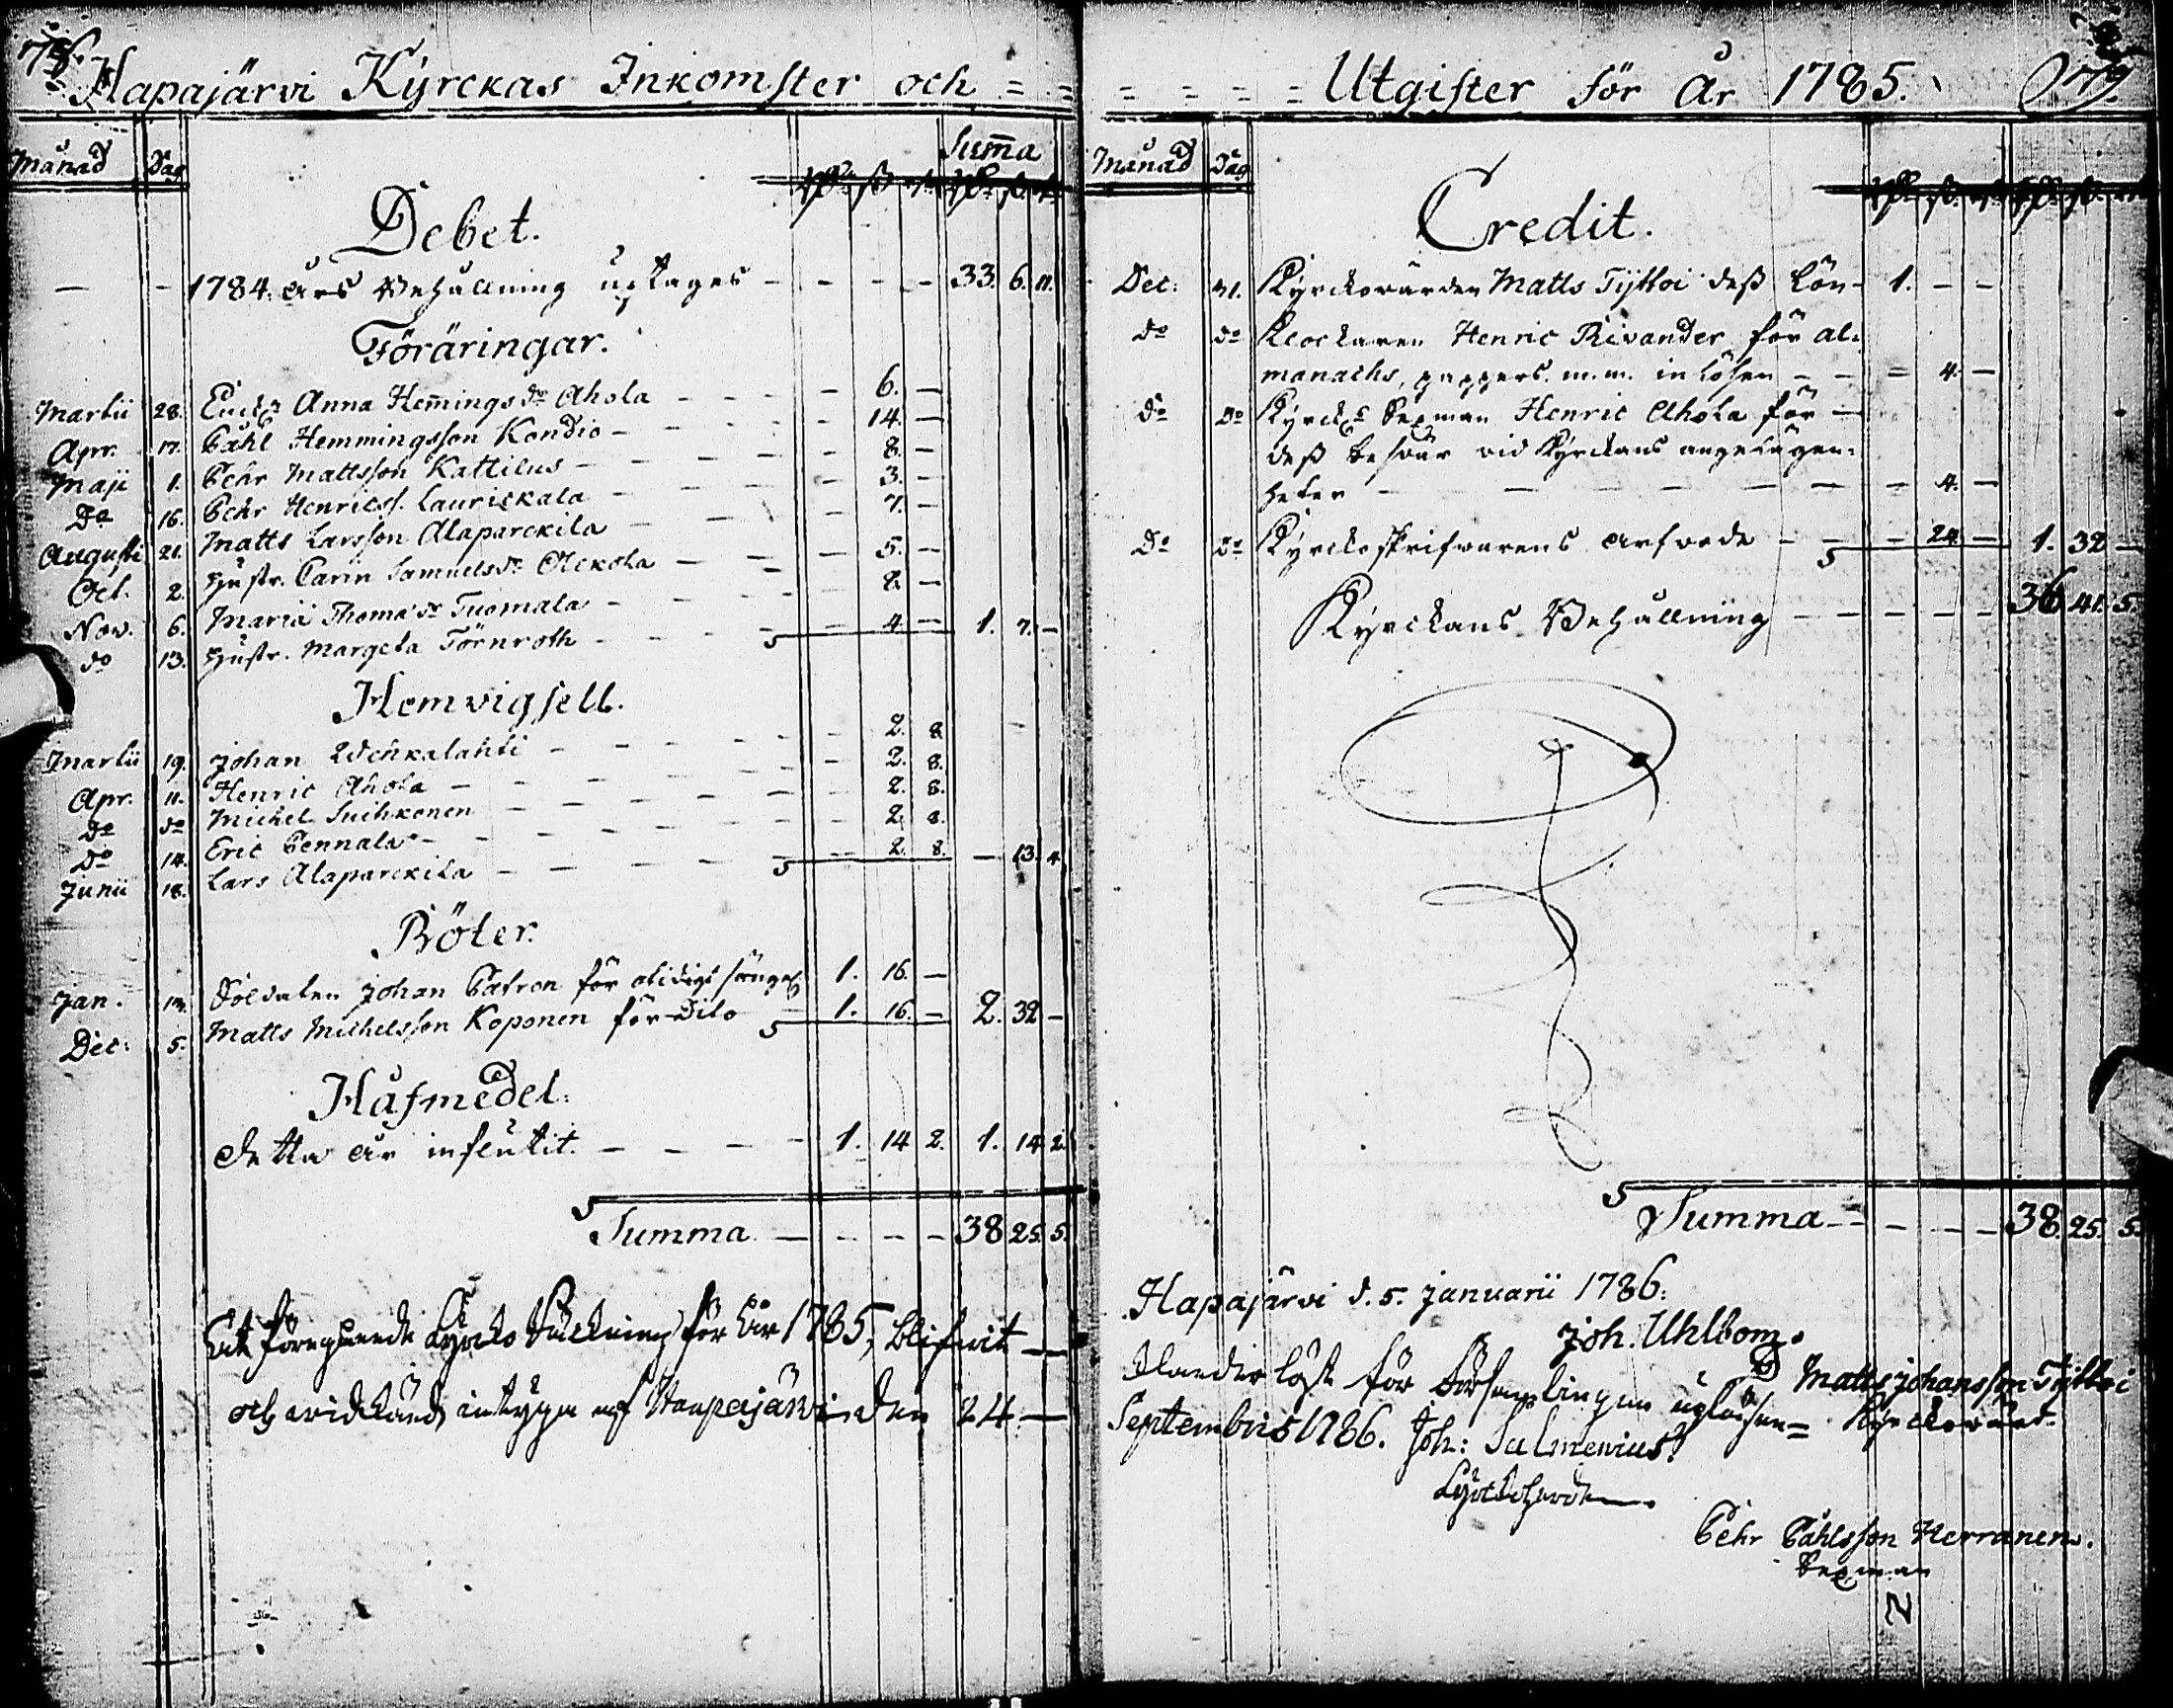 78.
Hapajärvi Kyrckas Inkomster och = =
Månad Dag Sum̅a
Debet.
— - 1784. års Behållning uptages - - - - 33. 6. 11.
Föräringar.
Martii 28. Enck. Anna Hem̅ings dr Ahola - - - - 6. —
Apr. 17. Påhl Hemmingsson Kondio - - - - 14. —
Maji 1. Pehr Mattsson Kattilus - - - - 8. —
Do 16. Pehr Henricss. Laurickala - - - - 3. —
Augusti 21. Matts Larsson Alaparckila - - - 7. —
Oct. 2. Hustr. Carin Samuelsdr Olckola - - - 5. —
Nov. 6. Maria Thomædr Tuomala - - - - 2. —
do 13. Hustr. Margeta Törnroth - - - - 4. — 1. 7. —
Hemvigsell.
Martii 19. Johan Wenkalahti - - - - - 2. 8.
Apr. 11. Henric Ahola - - - - - 2. 8.
Do do Michel Suihkonen - - - - - 2. 8.
Do 14. Eric Pennala - - - - - 2. 8.
Junii 18. Lars Alaparckila - - - - - 2. 8. — 13. 4.
Böter.
Jan. Soldaten Johan Patron för otidigt 1. 16. —
Dec. 5. Matts Michelsson Koponen för Dito 1. 16. — 2. 32 —
Håfmedel.
detta år influtit. - - - - 1. 14 2. 1. 14 2.
Summa — - - - 38 25. 5.
At föregående Kyrcko Räckning för år 1785, blifvit —
och widkänd, intygar af Haapajärvi den 24 —
= = = = Utgifter för År 1785. 79.
Månad Dag
Credit.
Dec: 31. Kyrckovärden Matts Tyttoi dess Lön - 1. - -
do do Klockaren Henric Rivander för al-
manachs, pappers. m.m. inlösen - - = 4. —
do do Kyrck. Sexman Henric Ahola för —
dess besvär vid Kyrckans angelägen-
heter - - - - - - 4. —
do do Kyrckoskrifvarens arfvode - - - 24 — 1. 32 —
Kyrckans Behållning - - - - - 36 41. 5.
Summa - - - - 38. 25. 5.
Hapajärvi d. 5. Januarii 1786.
Joh. Uhlbom.
för församlingen upläsen =
Matts Johansson Tyttoi
Kyrckovärd.
Septembris 1786. Joh: Salmenius.
Kyrckoherde.
Pehr Påhlsson Herranen.
Sexman
2